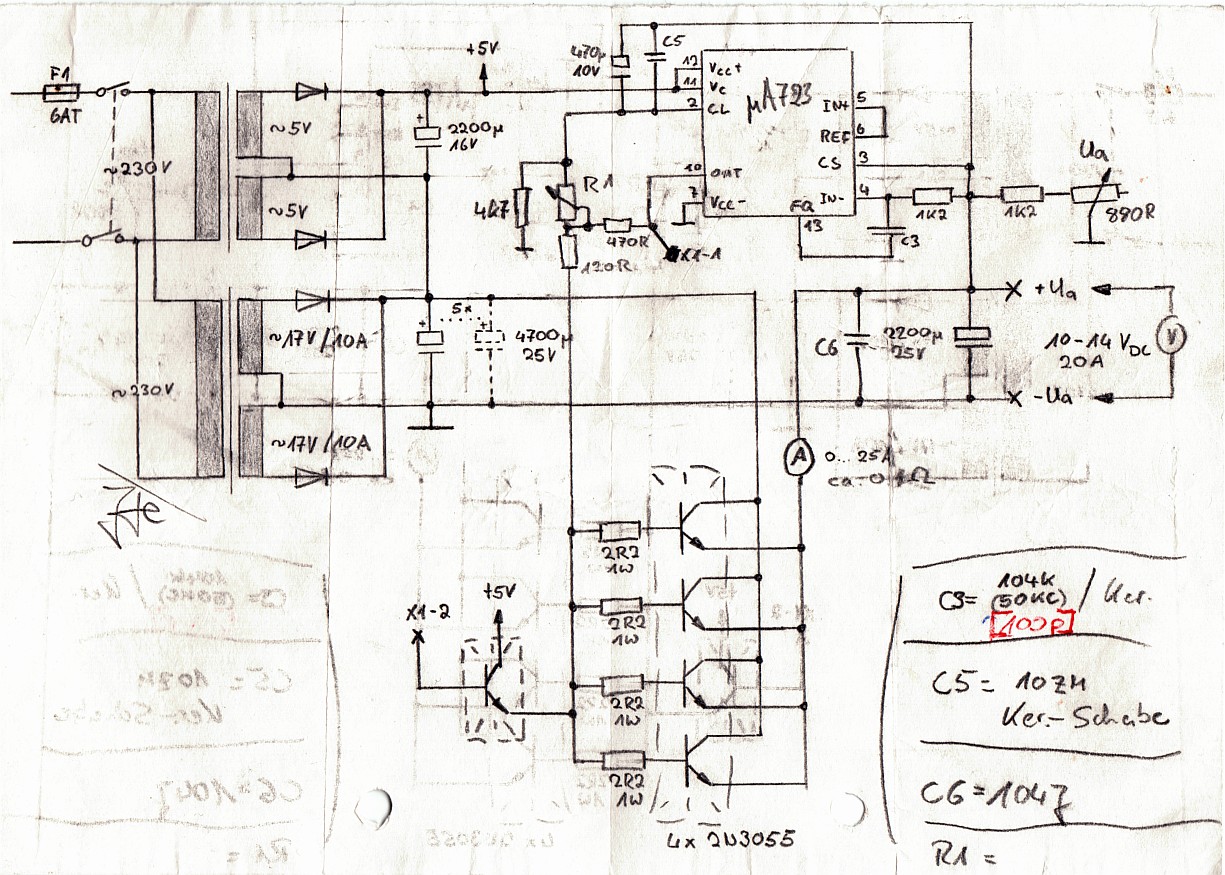 F1
6AT
~230V
~5V
~5V
+5V
2200µ
16V
470µ
10V
C5
12
VCC+
11
VC
2
CL
µA723
IN+
5
REF
6
CS
3
IN-
4
10
OUT
7
VCC-
FQ
13
R1
4k7
470R
X1-1
120R
C3
1K2
1K2
Ua
880R
~230V
~17V/10A
~17V/10A
5x
4700µ
25V
C6
2200µ
25V
+Ua
-Ua
V
10-14 VDC
20A
A
0...25A
2R2
1W
2R2
1W
2R2
1W
2R2
1W
X1-2
+5V
4x 2N3055
C3= 104K
(50KC)
/ Ker.
100p
C5= 10ZM
Ker.-Scheibe
C6=104Z
R1 =